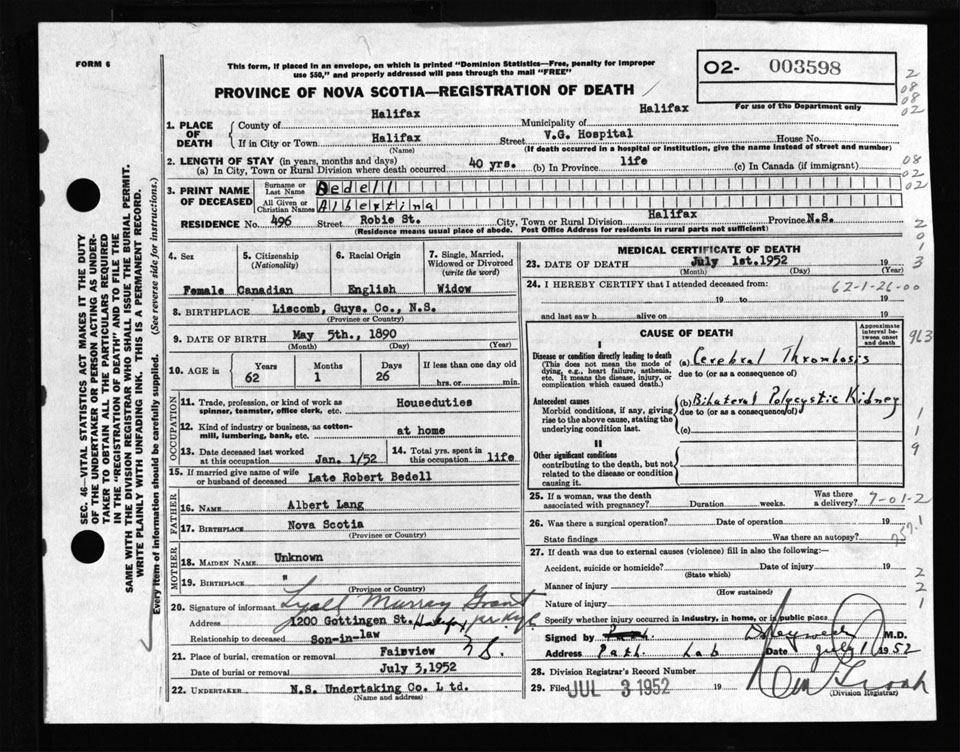 FORM 6
This form, if placed in an envelope, on which is printed "Dominion Statistics—Free, penalty for improper
use $50," and properly addressed will pass through the mail "FREE"
PROVINCE OF NOVA SCOTIA—REGISTRATION OF DEATH
02- 003598
For use of the Department only
2
08
08
02
1. PLACE OF DEATH
County of Halifax Municipality of Halifax
If in City or Town Halifax Street V.G. Hospital House No.
(Name) (If death occurred in a hospital or institution, give the name instead of street and number)
2. LENGTH OF STAY (in years, months and days)
(a) In City, Town or Rural Division where death occurred 40 yrs. (b) In Province life (c) In Canada (if immigrant)
08
02
02
3. PRINT NAME OF DECEASED
Surname or Last Name Bedell
All Given or Christian Names Albertina
RESIDENCE No. 496 Street Robie St. City, Town or Rural Division Halifax Province N.S.
(Residence means usual place of abode. Post Office Address for residents in rural parts not sufficient)
4. Sex
Female
5. Citizenship (Nationality)
Canadian
6. Racial Origin
English
7. Single, Married, Widowed or Divorced (write the word)
Widow
8. BIRTHPLACE Liscomb, Guys. Co., N.S.
(Province or Country)
9. DATE OF BIRTH May 5th., 1890
(Month) (Day) (Year)
10. AGE in Years Months Days If less than one day old
62 1 26 hrs. or min.
OCCUPATION
11. Trade, profession, or kind of work as spinner, teamster, office clerk, etc. Houseduties
12. Kind of industry or business, as cotton-mill, lumbering, bank, etc. at home
13. Date deceased last worked at this occupation Jan. 1/52
14. Total yrs. spent in this occupation life
15. If married give name of wife or husband of deceased Late Robert Bedell
FATHER
16. NAME Albert Lang
17. BIRTHPLACE Nova Scotia
(Province or Country)
MOTHER
18. MAIDEN NAME Unknown
19. BIRTHPLACE "
(Province or Country)
20. Signature of informant Lyall Murray Grant
Address 1200 Gottingen St. Halifax, N.S.
Relationship to deceased Son-in-law
21. Place of burial, cremation or removal Fairview
Date of burial or removal July 3,1952
22. UNDERTAKER N.S. Undertaking Co. Ltd.
(Name and address)
MEDICAL CERTIFICATE OF DEATH
23. DATE OF DEATH July 1st.1952 19
(Month) (Day) (Year)
24. I HEREBY CERTIFY that I attended deceased from:
62-1-26-00
19 to 19
and last saw h alive on 19
CAUSE OF DEATH
Approximate interval between onset and death
I
Disease or condition directly leading to death
(This does not mean the mode of dying, e.g., heart failure, asthenia, etc. It means the disease, injury, or complication which caused death.)
(a) Cerebral Thrombosis
due to (or as a consequence of)
Antecedent causes
Morbid conditions, if any, giving rise to the above cause, stating the underlying condition last.
(b) Bilateral Polycystic Kidney
due to (or as a consequence of)
(c)
II
Other significant conditions
contributing to the death, but not related to the disease or condition causing it.
25. If a woman, was the death associated with pregnancy? Duration weeks. Was there a delivery? 7-01-2
26. Was there a surgical operation? Date of operation 19
State findings Was there an autopsy? 757.1
27. If death was due to external causes (violence) fill in also the following:—
Accident, suicide or homicide? Date of injury 19
(State which)
Manner of injury
(How sustained)
Nature of injury
Specify whether injury occurred in industry, in home, or in public place.
Signed by M.D.
Address Path. Lab Date July 1 1952
28. Division Registrar's Record Number
29. Filed JUL 3 1952 19
(Division Registrar)
2
0
1
3
963
1
1
9
2
2
1
SEC. 46—VITAL STATISTICS ACT MAKES IT THE DUTY
OF THE UNDERTAKER OR PERSON ACTING AS UNDER-
TAKER TO OBTAIN ALL THE PARTICULARS REQUIRED
IN THE "REGISTRATION OF DEATH" AND TO FILE THE
SAME WITH THE DIVISION REGISTRAR WHO SHALL ISSUE THE BURIAL PERMIT.
WRITE PLAINLY WITH UNFADING INK. THIS IS A PERMANENT RECORD.
Every item of information should be carefully supplied. (See reverse side for instructions.)